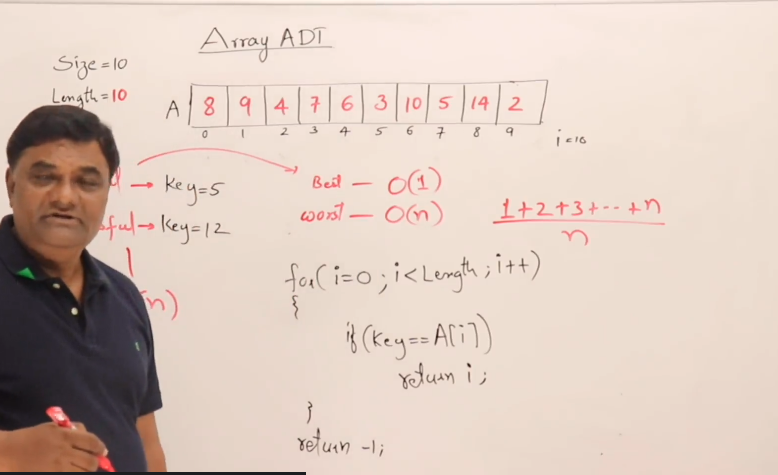 Array ADT
Size=10
Length=10
A 8 9 4 7 6 3 10 5 14 2
0 1 2 3 4 5 6 7 8 9
i=10
→ Key=5
Best — O(1)
ful → Key=12
worst — O(n)
1+2+3+--+n
n
(n)
for(i=0; i<Length; i++)
{
if(Key==A[i])
return i;
}
return -1;